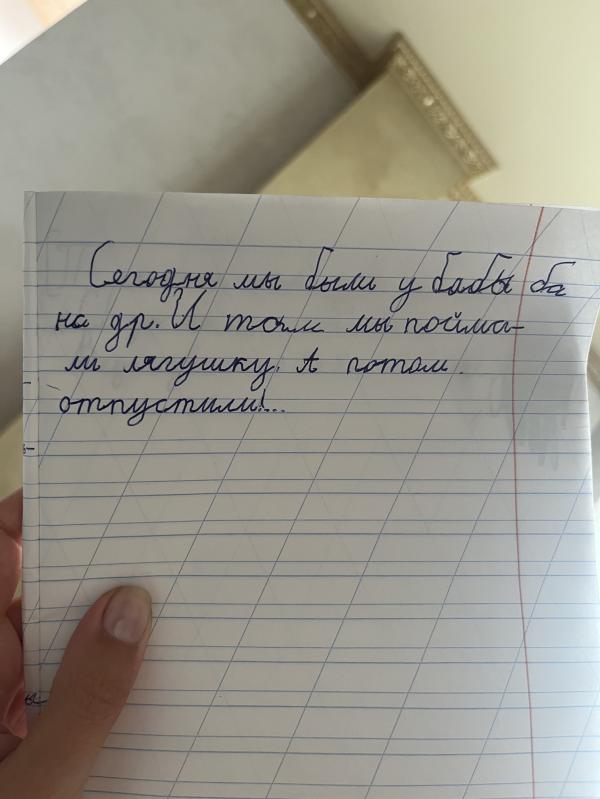 Сегодня мы были у бабы ба
на др. И там мы пойма-
ли лягушку. А потом
отпустили!...